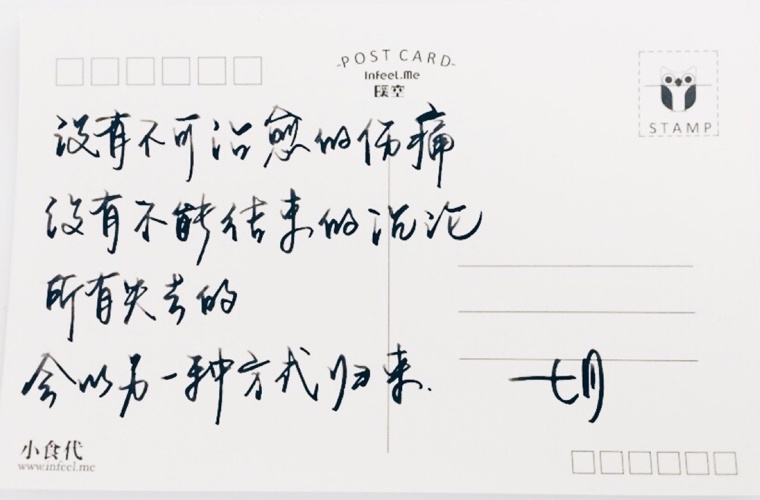 POST CARD
Infeel.Me
STAMP
没有不可治愈的伤痛
没有不能结束的沉沦
所有失去的
会以另一种方式归来.
七月
小食代
www.infeel.me